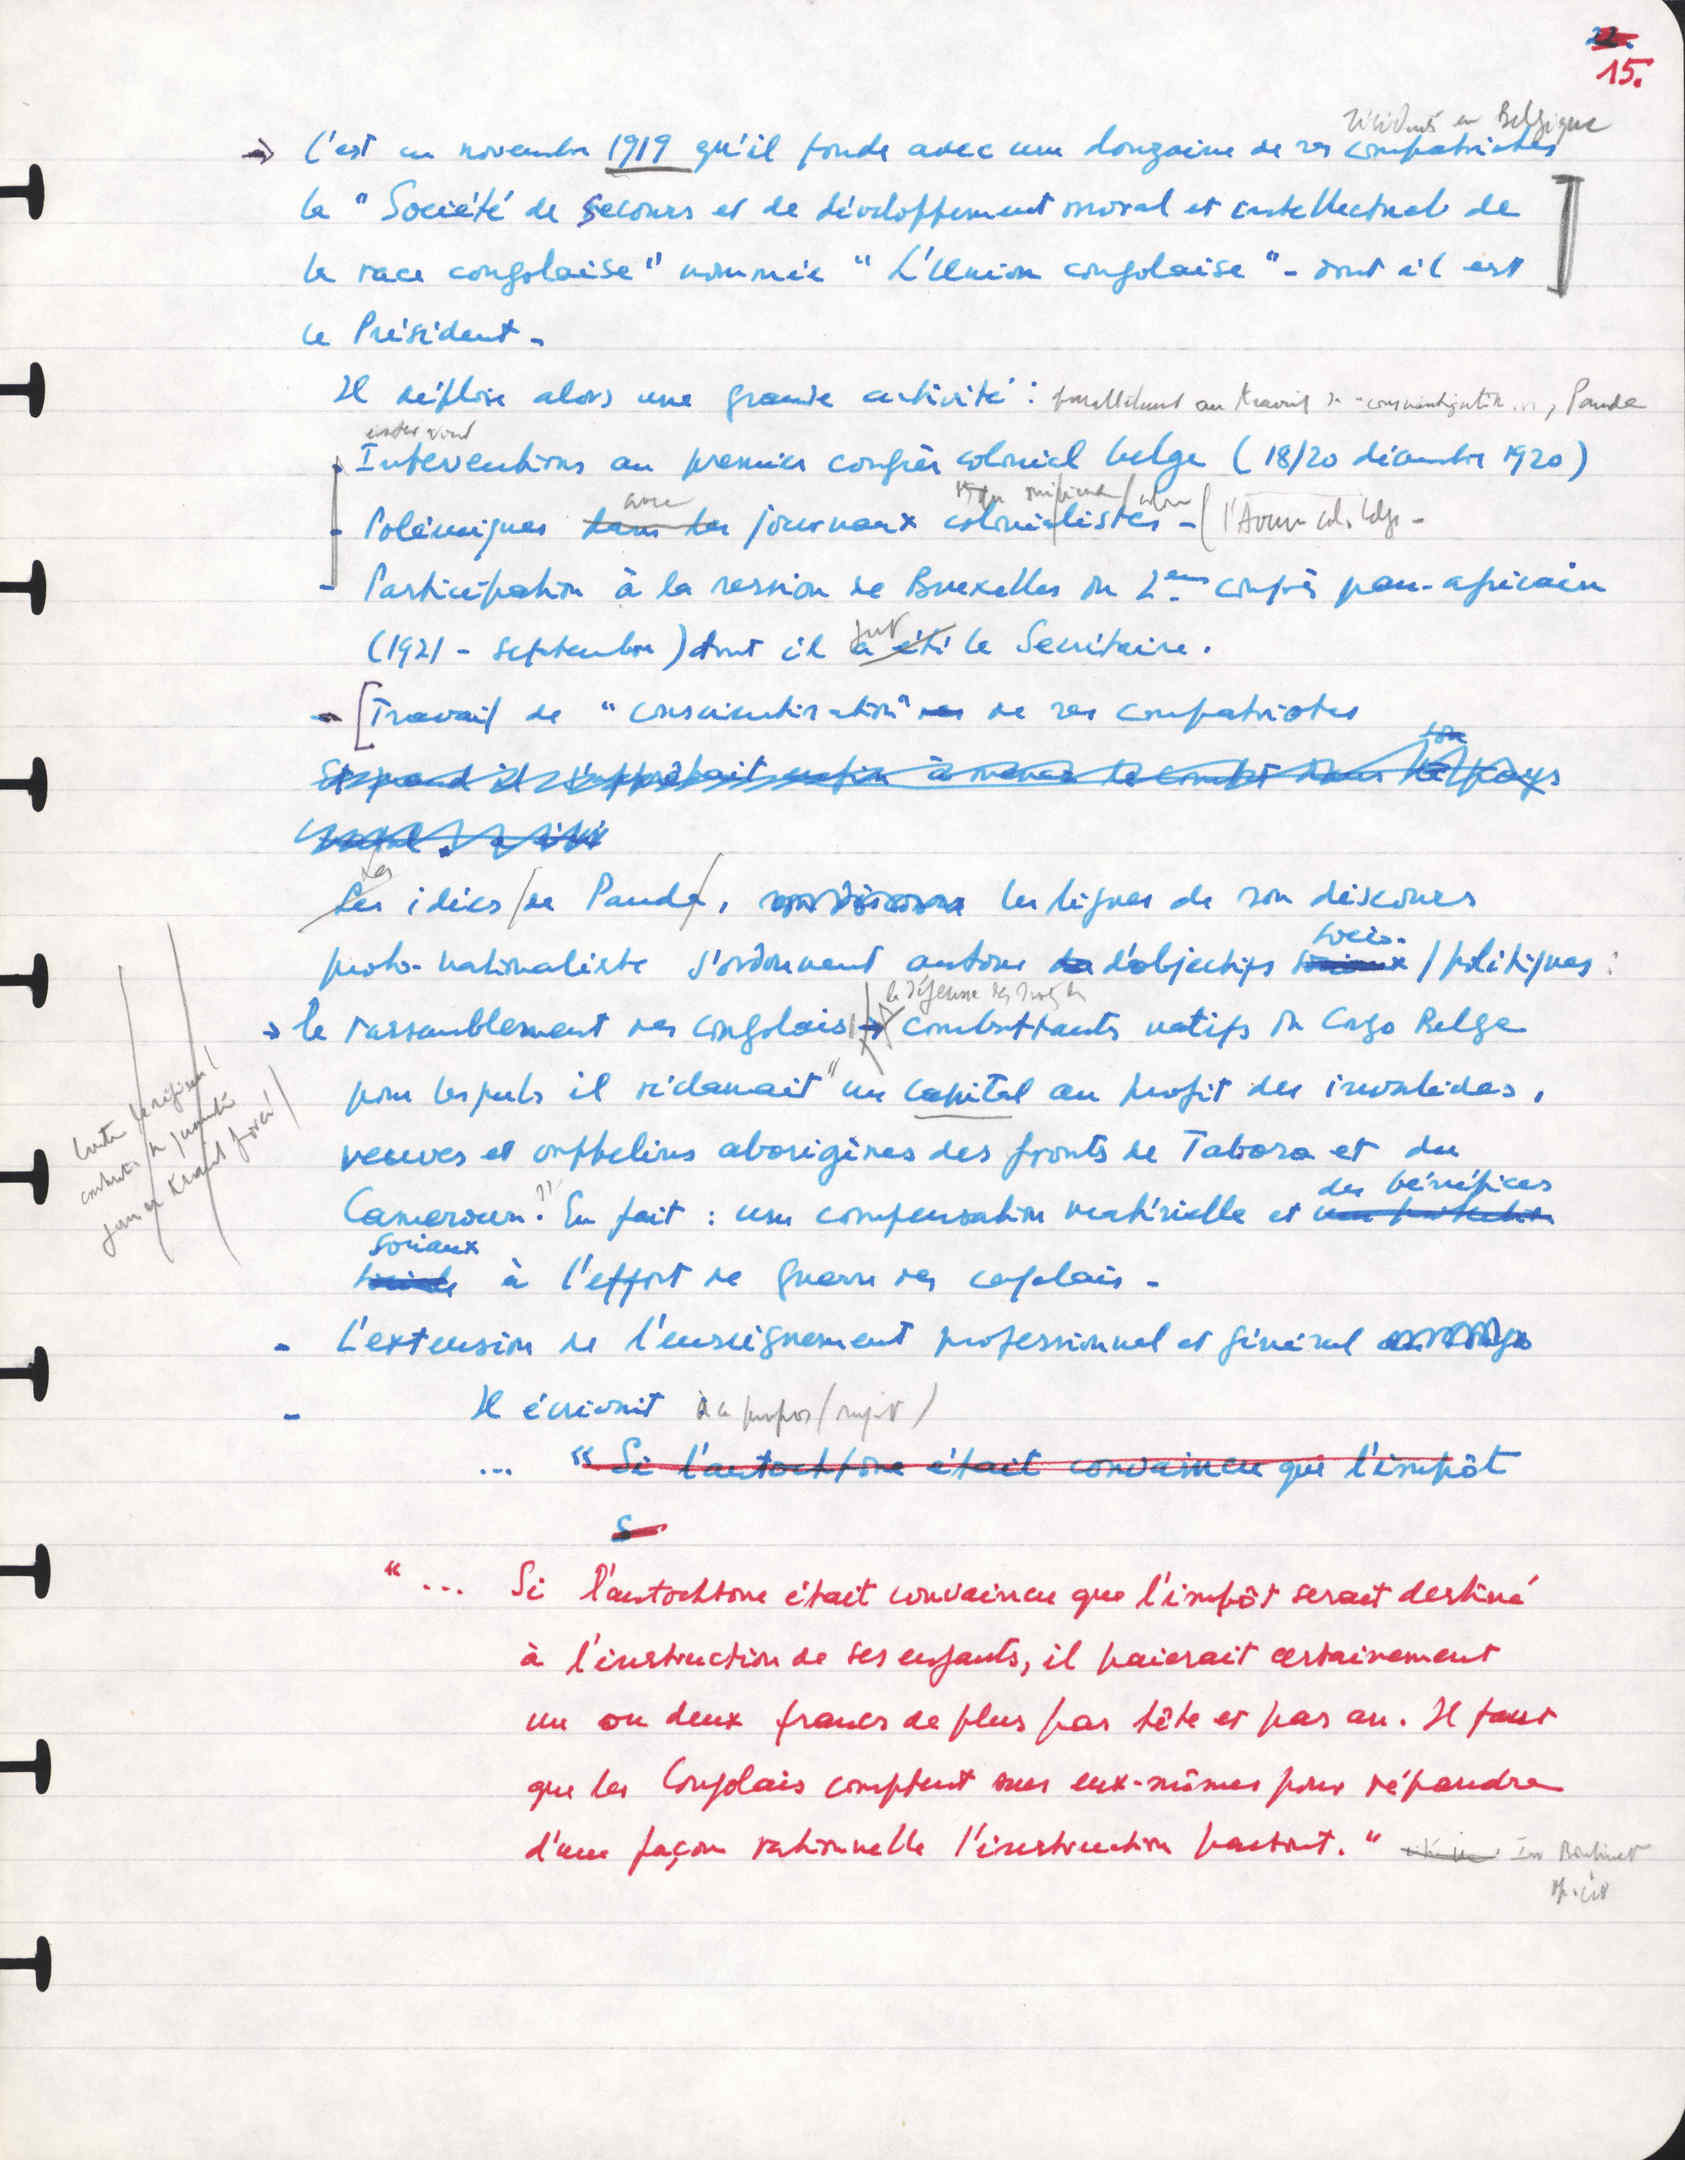 22.
15.
résidents en Belgique
→ C'est en novembre 1919 qu'il fonde avec une douzaine de ses compatriotes
la "Société de secours et de développement moral et intellectuel de
la race congolaise" nommée "L'Union congolaise" - dont il est
le Président -
Il déploie alors une grande activité : parallèlement au travail de "conscientisation", Panda
intervient
- Interventions au premier congrès colonial belge (18/20 décembre 1920)
avec
- Polémiques dans les journaux colonialistes - (l'Avenir col. belge -
- Participation à la session de Bruxelles du 2ème congrès pan-africain
fut
(1921 - septembre) dont il a été le Secrétaire.
- [Travail de "conscientisation" de ses compatriotes
son
Et quand il s'apprêtait enfin à mener le combat dans le pays
Les
Les idées de Panda, les lignes de son discours
socio-
proto-nationaliste s'ordonnent autour d'objectifs sociaux / politiques :
la défense des droits des
→ le rassemblement des congolais → combattants natifs du Congo Belge
pour lesquels il réclamait "un capital au profit des invalides,
veuves et orphelins aborigènes des fronts de Tabora et du
des bénéfices
Cameroun." En fait : une compensation matérielle et une protection
sociaux
sociale à l'effort de guerre des congolais -
- L'extension de l'enseignement professionnel et général
- Il écrivait à ce propos (sujet)
... "Si l'autochtone était convaincu que l'impôt
S
"... Si l'autochtone était convaincu que l'impôt serait destiné
à l'instruction de ses enfants, il paierait certainement
un ou deux francs de plus par tête et par an. Il faut
que les Congolais comptent sur eux-mêmes pour répandre
d'une façon rationnelle l'instruction partout." In
op. cit
travail forcé